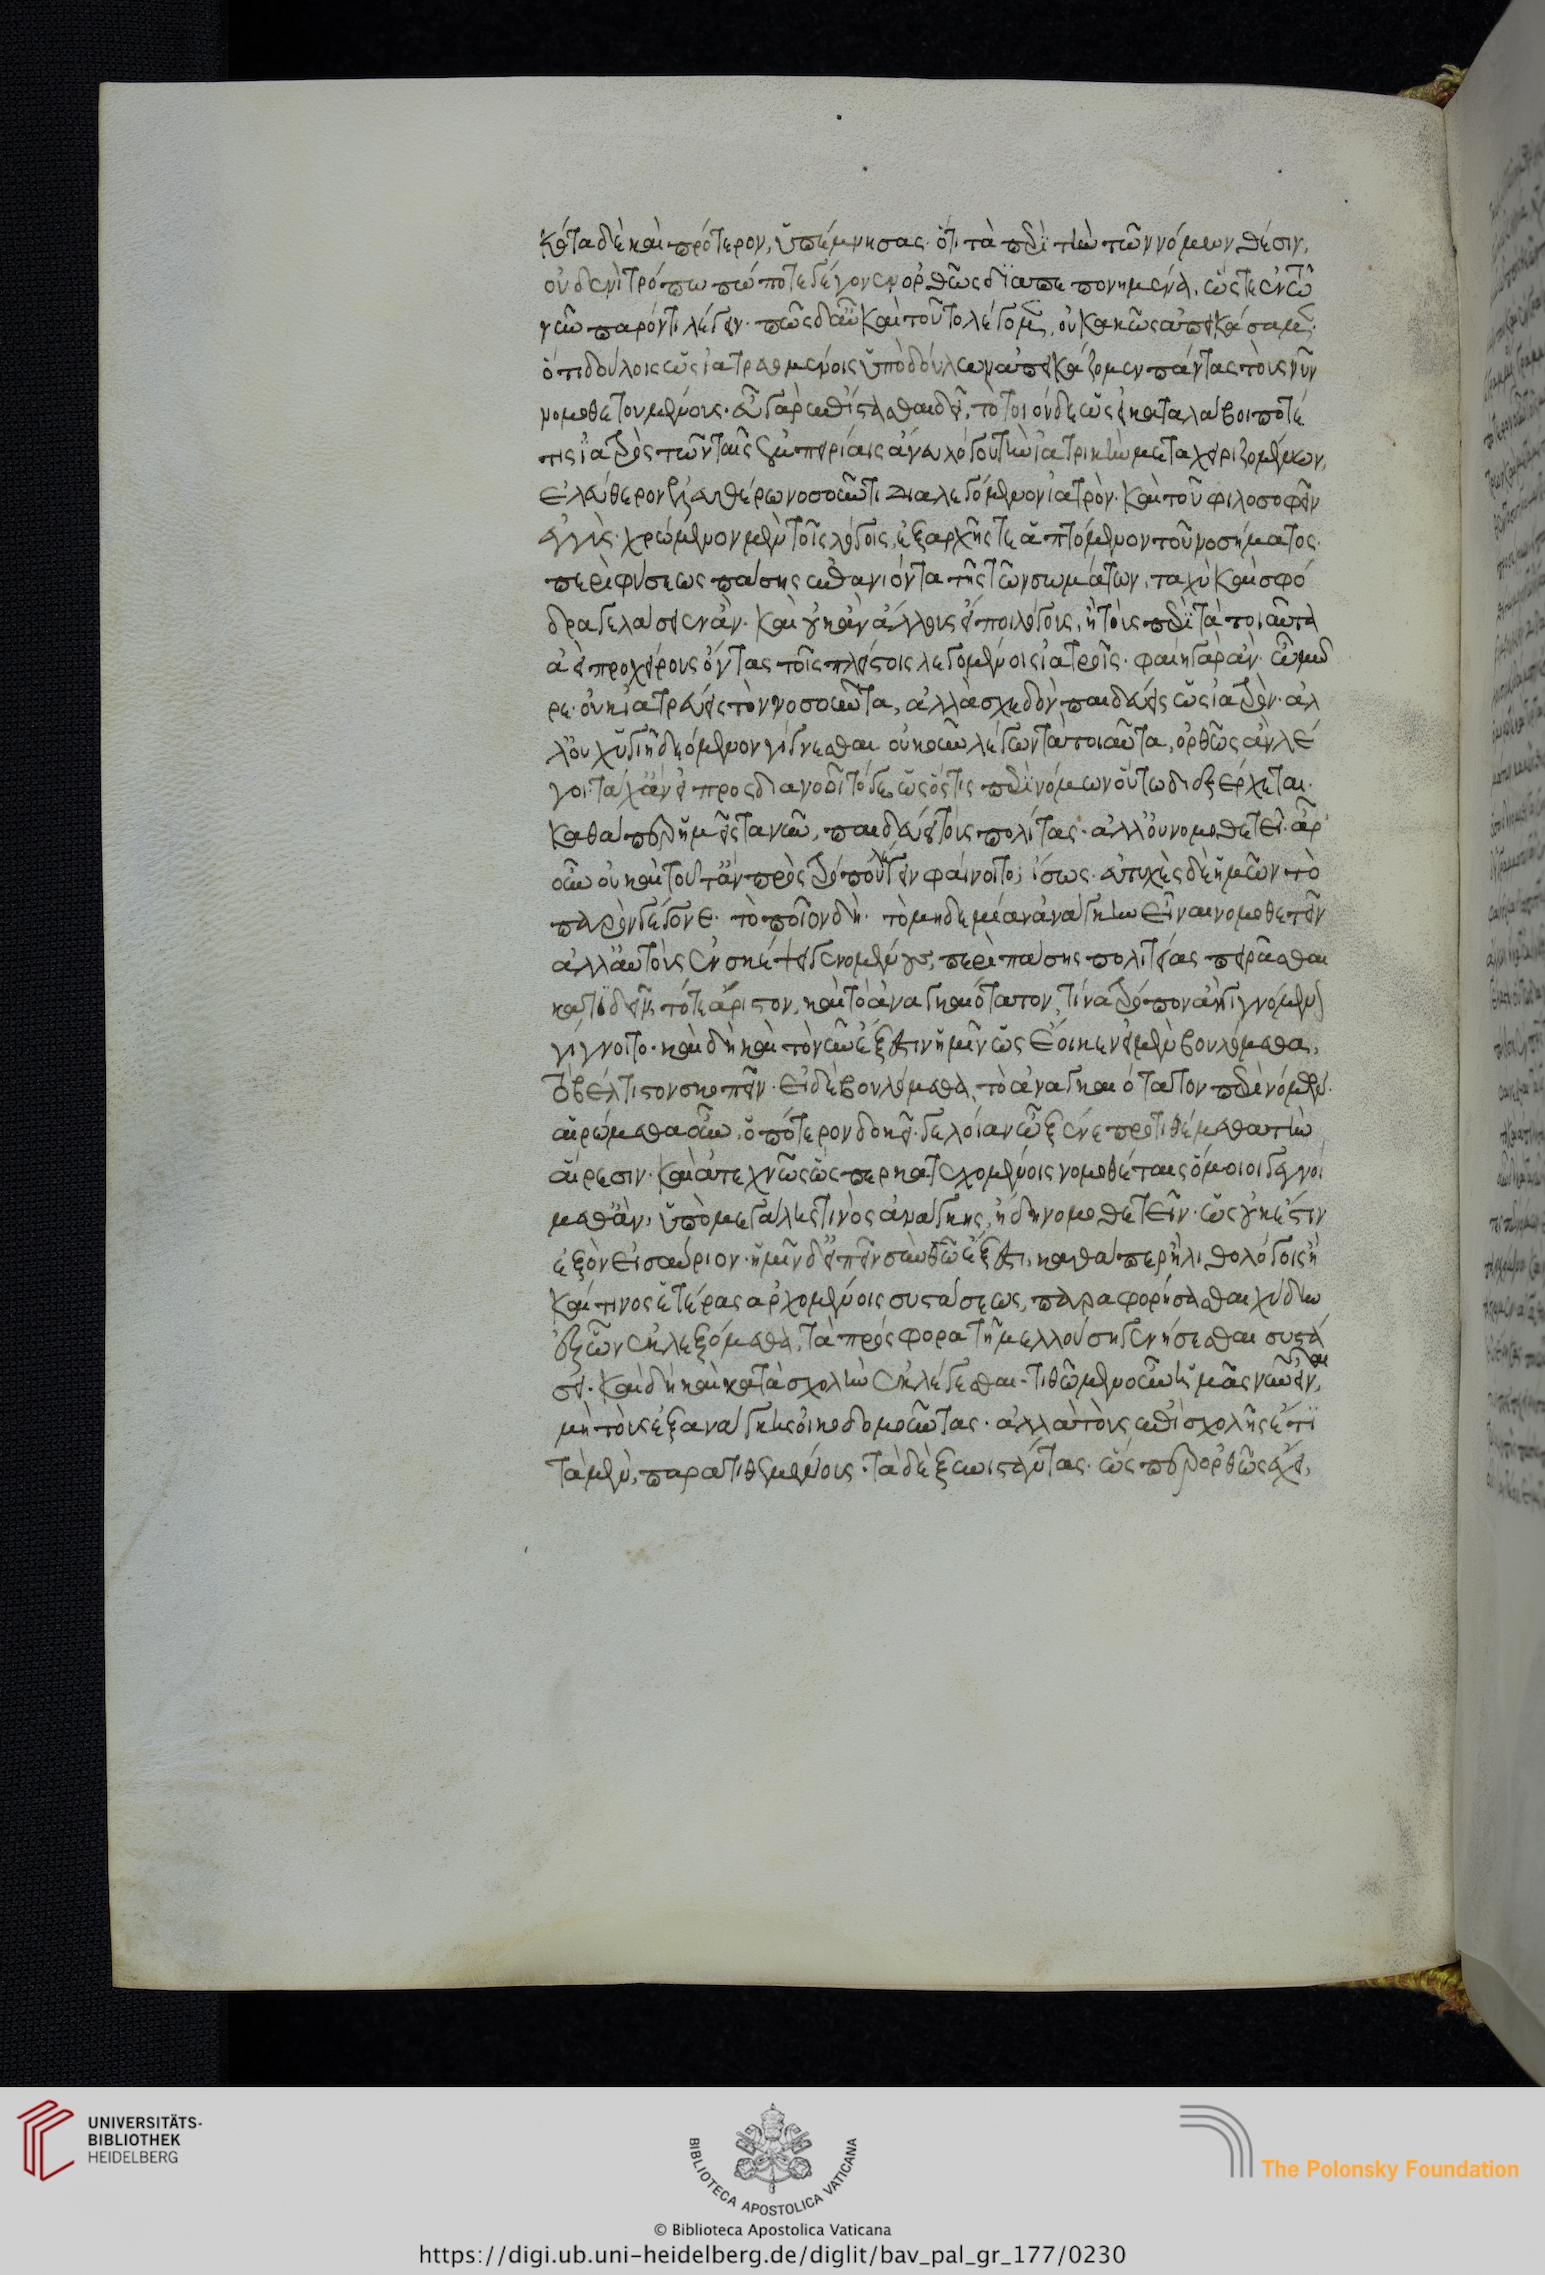 κεῖτα δὲ καὶ πρότερον, ὑπέμνησας. ὅτι τὰ περὶ τὴν τῶν νόμων θέσιν,
οὐδενὶ τρόπω πώποτε γέγονεν ὀρθῶς διαπεπονημένα, ὥς γε ἐν τῶ
νῦν παρόντι λέγειν. πῶς δ' αὖ καὶ τοῦτο λέγομεν, οὐ κακῶς ἀπεικάσαμεν.
ὅτι δούλοις ὡς ἰατρευομένοις ὑπὸ δούλων ἀπεικάζομεν πάντας τοὺς νῦν
νομοθετουμένους. εὖ γὰρ ἐπίστασθαι δεῖ, τὸ τοιόνδε ὡς εἰ καταλάβοι ποτέ
τις ἰατρὸς τῶν ταῖς ἐμπειρίαις ἄνευ λόγου τὴν ἰατρικὴν μεταχειριζομένων,
ἐλεύθερον ἐλευθέρω νοσοῦντι διαλεγόμενον ἰατρὸν. καὶ τοῦ φιλοσοφεῖν
ἐγγὺς. χρώμενον μὲν τοῖς λόγοις, ἐξ ἀρχῆς τε ἁπτόμενον τοῦ νοσήματος.
περὶ φύσεως πάσης ἐπανιόντα τῆς τῶν σωμάτων, ταχὺ καὶ σφό
δρα γελάσειεν ἂν. καὶ οὐκ ἂν ἄλλους εἴποι λόγους, ἢ τοὺς περὶ τὰ τοιαῦτα
ἀεὶ προχείρους ὄντας τοῖς πλείστοις λεγομένοις ἰατροῖς. φαίη γὰρ ἂν. ὦ μῶ
ρε. οὐκ ἰατρεύεις τὸν νοσοῦντα, ἀλλὰ σχεδὸν παιδεύεις ὡς ἰατρὸν. ἀλ
λ' οὐχ ὑγιῆ δεόμενον γίγνεσθαι. οὐκοῦν λέγων τὰ τοιαῦτα, ὀρθῶς ἂν λέ
γοι. τάχ' ἂν εἰ προσδιανοοῖτό γε ὡς ὅστις περὶ νόμων οὕτω διεξέρχεται.
καθάπερ ἡμεῖς τανῦν, παιδεύει τοὺς πολίτας. ἀλλ' οὐ νομοθετεῖ. ἆρ'
οὖν οὐ καὶ τοῦτ' ἂν πρὸς τρόπου λέγειν φαίνοιτο; ἴσως. εὐτυχὲς δὲ ἡμῶν τὸ
παρὸν γέγονε. τὸ ποῖον δὴ. τὸ μηδεμίαν ἀνάγκην εἶναι νομοθετεῖν
ἀλλ' αὐτοὺς ἐν σκέψει γενομένους, περὶ πάσης πολιτείας πειρᾶσθαι
κατιδεῖν, τό τε ἄριστον, καὶ τὸ ἀναγκαιότατον, τίνα τρόπον ἂν γιγνόμενον
γίγνοιτο. καὶ δὴ καὶ τὸ νῦν ἔξεστιν ἡμῖν ὡς ἔοικεν εἰ μὲν βουλόμεθα,
τὸ βέλτιστον σκοπεῖν. εἰ δὲ βουλόμεθα, τὸ ἀναγκαιότατον περὶ νόμων.
αἱρώμεθα οὖν, ὁπότερον δοκεῖ. γελοίαν ὦ ξένε προτιθέμεθα τὴν
αἵρεσιν. καὶ ἀτεχνῶς ὥσπερ κατεχομένοις νομοθέταις ὅμοιοι γιγνοί
μεθ' ἂν, ὑπὸ μεγάλης τινὸς ἀνάγκης, ἤδη νομοθετεῖν. ὡς οὐκέτιν
ἐξὸν εἰσαύριον. ἡμῖν δ' εἰπεῖν σὺν θεῶ ἔξεστι, καθάπερ ἢ λιθολόγοις ἢ
καί τινος ἑτέρας ἀρχομένοις συστάσεως, παραφορήσασθαι χύδην
ἐξ ὧν ἐκλεξόμεθα, τὰ πρόσφορα τῆ μελλούση γενήσεσθαι συστά
σει. καὶ δὴ καὶ κατὰ σχολὴν ἐκλέγεσθαι. τιθῶμεν οὖν ἡμᾶς νῦν εἶναι,
μὴ τοὺς ἐξ ἀνάγκης οἰκοδομοῦντας. ἀλλὰ τοὺς ἐπὶ σχολῆς ἔτι
τὰ μὲν, παρατιθεμένους. τὰ δὲ ξυνιστάντας. ὥσπερ ὀρθῶς ἔχει,
UNIVERSITÄTS-
BIBLIOTHEK
HEIDELBERG
BIBLIOTECA APOSTOLICA VATICANA
The Polonsky Foundation
© Biblioteca Apostolica Vaticana
https://digi.ub.uni-heidelberg.de/diglit/bav_pal_gr_177/0230